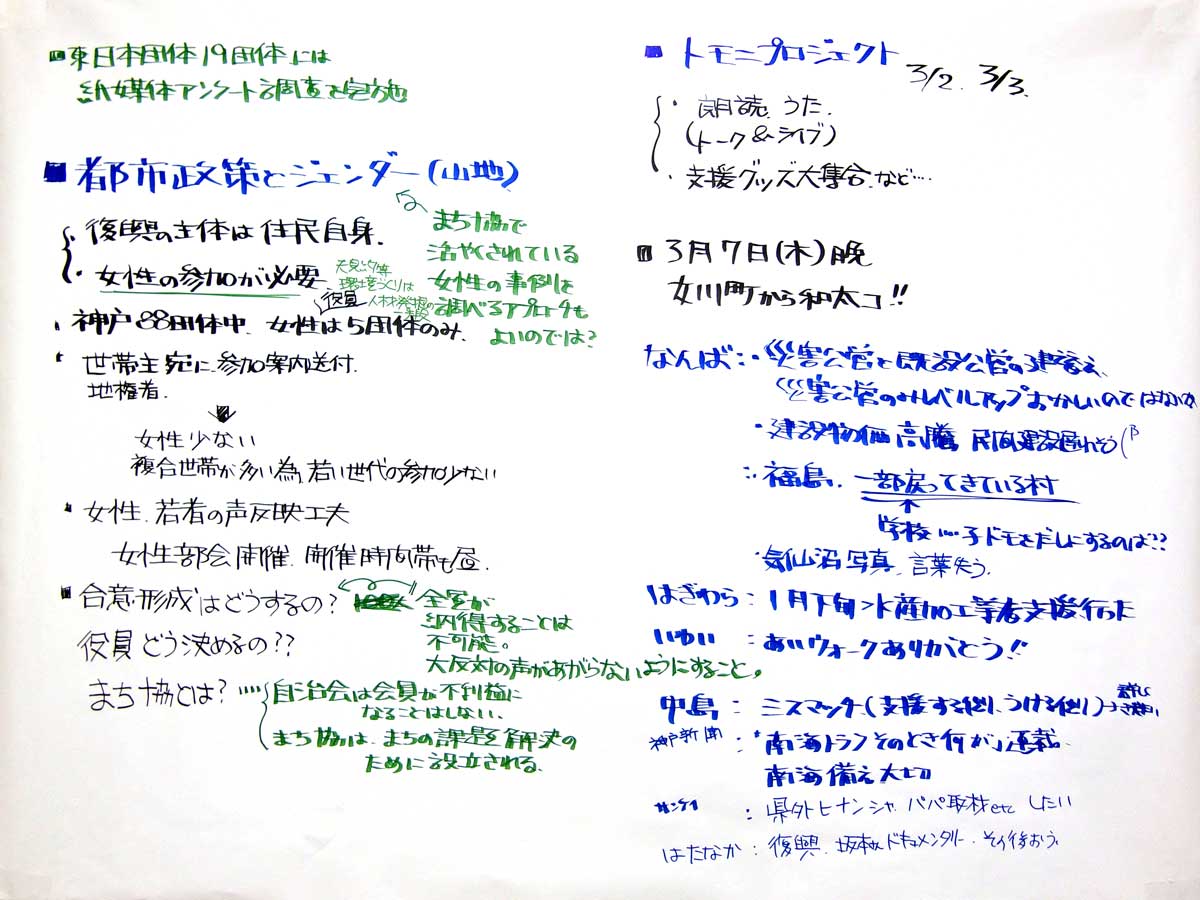 ■東日本団体19団体には
紙媒体アンケート調査を実施
■都市政策とジェンダー(山地)
・復興の主体は住民自身.
・女性の参加が必要
まち協で
活やくされている
女性の事例を
調べるアプローチも
よいのでは?
環境づくりは
人材発掘の
役員
・神戸88団体中、女性は5団体のみ.
・世帯主宛に参加案内送付.
地権者.
↓
女性少ない
複合世帯が多い為、若い世代の参加少ない
・女性、若者の声反映工夫
女性部会開催、開催時間帯も昼.
■合意形成はどうするの?
全員が
納得することは
不可能。
大反対の声があがらないようにすること。
役員どう決めるの??
まち協とは?
自治会は会員が不利益に
なることはしない.
まち協は、まちの課題解決の
ために設立される.
■トモニプロジェクト 3/2、3/3.
・朗読、うた.
(トーク&ライブ)
・支援グッズ大集合、など…
■3月7日(木)晩
女川町から和太コ!!
なんば:・災害公営と既設公営の建替え、
災害公営のみレベルアップおかしいのではないか
・建設物価高騰、民間建設遅れそう
:・福島、一部戻ってきている村
↑
学校…子ドモをだしにするのは??
・気仙沼写真、言葉失う.
はぎわら:1月下旬 水産加工業者支援行った
いわい:あいウォークありがとう!!
中島:ミスマッチ(支援する側、うける側)
神戸新聞:「南海トラフそのとき何が」連載.
南海備え大切
サンケイ:県外ヒナンシャ、パパ取材etc したい
はたなか:復興、坂本さんドキュメンタリー、その後おう.